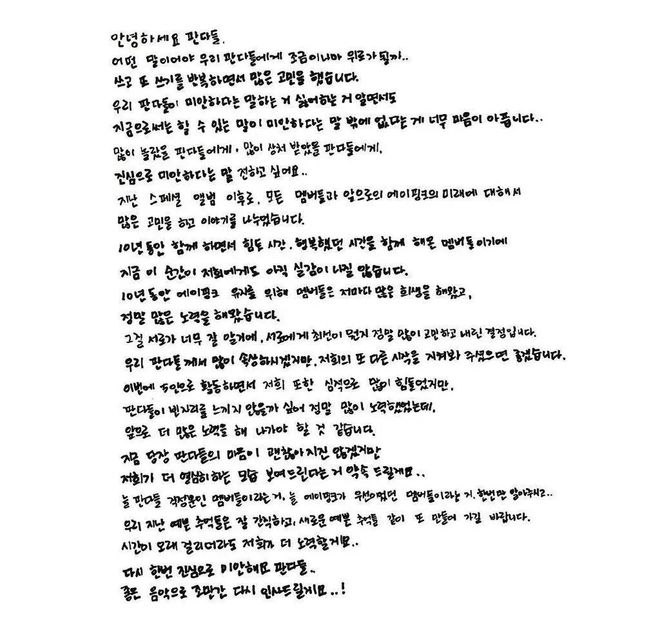 안녕하세요 판다들.
어떤 말이어야 우리 판다들에게 조금이나마 위로가 될까..
쓰고 또 쓰기를 반복하면서 많은 고민을 했습니다.
우리 판다들이 미안하다는 말하는 거 싫어하는 거 알면서도
지금으로써는 할 수 있는 말이 미안하다는 말 밖에 없다는 게 너무 마음이 아픕니다..
많이 놀랐을 판다들에게, 많이 상처 받았을 판다들에게,
진심으로 미안하다는 말 전하고 싶어요..
지난 스페셜 앨범 이후로, 모든 멤버들과 앞으로의 에이핑크의 미래에 대해서
많은 고민을 하고 이야기를 나누었습니다.
10년동안 함께 하면서 힘든 시간, 행복했던 시간을 함께 해온 멤버들이기에
지금 이 순간이 저희에게도 아직 실감이 나질 않습니다.
10년동안 에이핑크 유지를 위해 멤버들은 저마다 많은 희생을 해왔고,
정말 많은 노력을 해왔습니다.
그걸 서로가 너무 잘 알기에, 서로에게 최선이 뭔지 정말 많이 고민하고 내린 결정입니다.
우리 판다들께서 많이 속상하시겠지만, 저희의 또 다른 시작을 지켜봐 주셨으면 좋겠습니다.
이번에 5인으로 활동하면서 저희 또한 심적으로 많이 힘들었지만,
판다들이 빈자리를 느끼지 않을까 싶어 정말 많이 노력했었는데,
앞으로 더 많은 노력을 해 나가야 할 것 같습니다.
지금 당장 판다들의 마음이 괜찮아지진 않겠지만
저희가 더 열심히하는 모습 보여드린다는거 약속 드릴게요..
늘 판다들 걱정뿐인 멤버들이라는거, 늘 에이핑크가 우선이었던 멤버들이라는거, 한번만 알아주시고..
우리 지난 예쁜 추억들은 잘 간직하고, 새로운 예쁜 추억들 같이 또 만들어 가길 바랍니다.
시간이 오래 걸리더라도 저희가 더 노력할게요..
다시 한번 진심으로 미안해요 판다들..
좋은 음악으로 조만간 다시 인사드릴게요..!